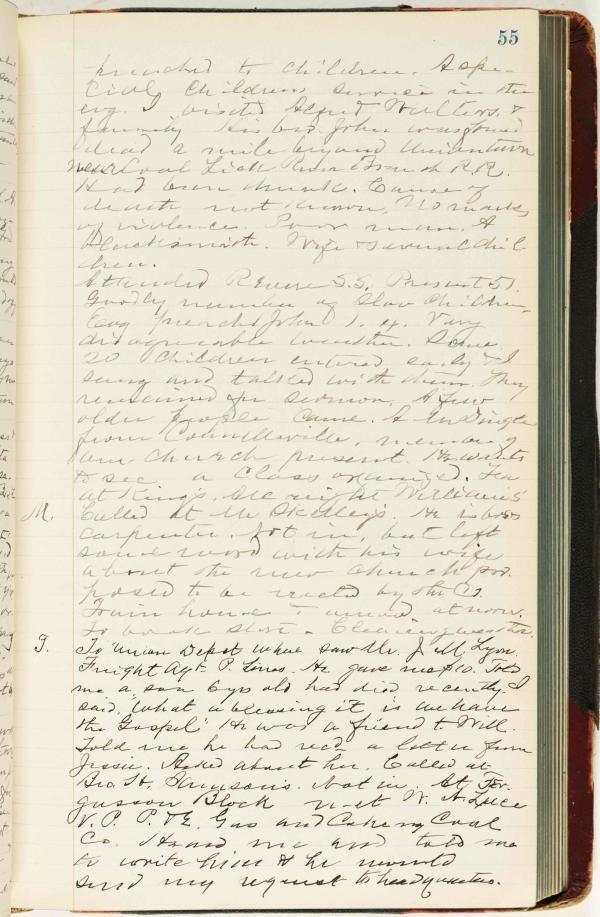 55
preached to children. A spe-
cial children service in the
evg. I visited Alfred Walters &
family his bro. John was found
dead a mile beyond Uniontown
near Coal Lick Run Branch R.R.
Had been drunk. Cause of
death not known. No marks
of violence. Poor man. A
blacksmith. Wife & several chil-
dren.
Attended Revere S.S. Present 51.
Goodly number of Slav children.
Evg preached John 1. 4. Very
disagreeable weather. Some
20 children entered early & I
sung and talked with them. They
remained for sermon. A few
older people came. A
from Connellsville, member of
our church present. He wants
to see a class organized. Tea
at King's. All night Williams'
M. Called at Mr Skelley's. He is boss
carpenter. Not in, but left
some word with his wife
about the new church pro-
posed to be erected by the Co.
Train home & arrived at noon.
To book store. Clearing weather.
T. To Union Depot where saw Mr. J. M. Lyon.
Freight Agt. P. Lines. He gave me $10. Told
me a son 6 yrs old had died recently. I
said, "What a blessing it is we have
the Gospel" He was a friend to Will.
Told me he had recd a letter from
Jessie. Asked about her. Called at
Bro. H. Not in. At Fer-
gusson Block met W. A. Luce
V. P. P. & E. Gas and Coal
Co. Heard me and told me
to write him & he would
send my request to headquarters.